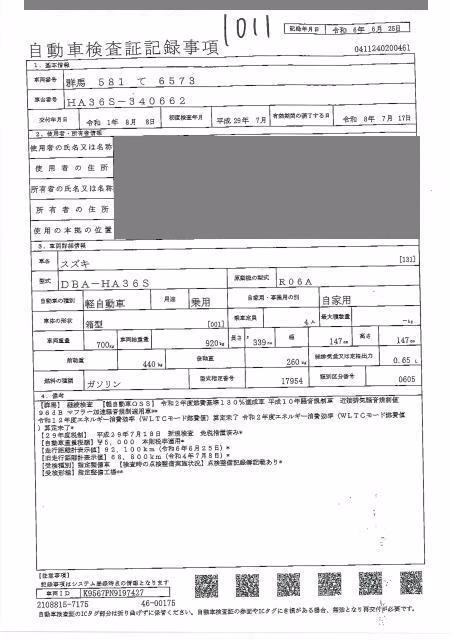 1011
記録年月日 令和 6年 6月 25日
自動車検査証記録事項
0411240200461
1. 基本情報
車両番号 群馬 581 て 6573
車台番号 HA36S-340662
交付年月日 令和 1年 8月 8日 初度検査年月 平成 29年 7月 有効期間の満了する日 令和 8年 7月 17日
2. 使用者・所有者情報
使用者の氏名又は名称
使用者の住所
所有者の氏名又は名称
所有者の住所
使用の本拠の位置
3. 車両詳細情報
車名 スズキ [131]
型式 DBA-HA36S 原動機の型式 R06A
自動車の種別 軽自動車 用途 乗用 自家用・事業用の別 自家用
車体の形状 箱型 [001] 乗車定員 4人 最大積載量 -kg
車両重量 700kg 車両総重量 920kg 長さ 339cm 幅 147cm 高さ 147cm
前軸重 440kg 後軸重 260kg 総排気量又は定格出力 0.65 L
燃料の種類 ガソリン 型式指定番号 17954 類別区分番号 0605
4. 備考
[群馬] 継続検査 [軽自動車OSS] 令和2年度燃費基準130%達成車 平成10年騒音規制車 近接排気騒音規制値
96dB マフラー加速騒音規制適用車**
令和12年度エネルギー消費効率(WLTCモード燃費値)算定未了 令和2年度エネルギー消費効率(WLTCモード燃費値
)算定未了*
[29年度税制] 平成29年7月18日 新規検査 免税措置済み*
[自動車重量税額] ¥5,000 本則税率適用*
[走行距離計表示値] 92,100km(令和6年6月25日)*
[旧走行距離計表示値] 68,800km(令和4年7月8日)*
[受検種別] 指定整備車 [検査時の点検整備実施状況] 点検整備記録簿記載あり*
[受検形態] 指定整備工場**
[注意事項]
記録事項はシステム登録時点の情報となります
車両ID K9567PN9197427
2108815-7175 46-00175
自動車検査証のICタグ部分は折り曲げずに保管ください。自動車検査証の券面やICタグにき損がある場合、無効となり再交付が必要です。